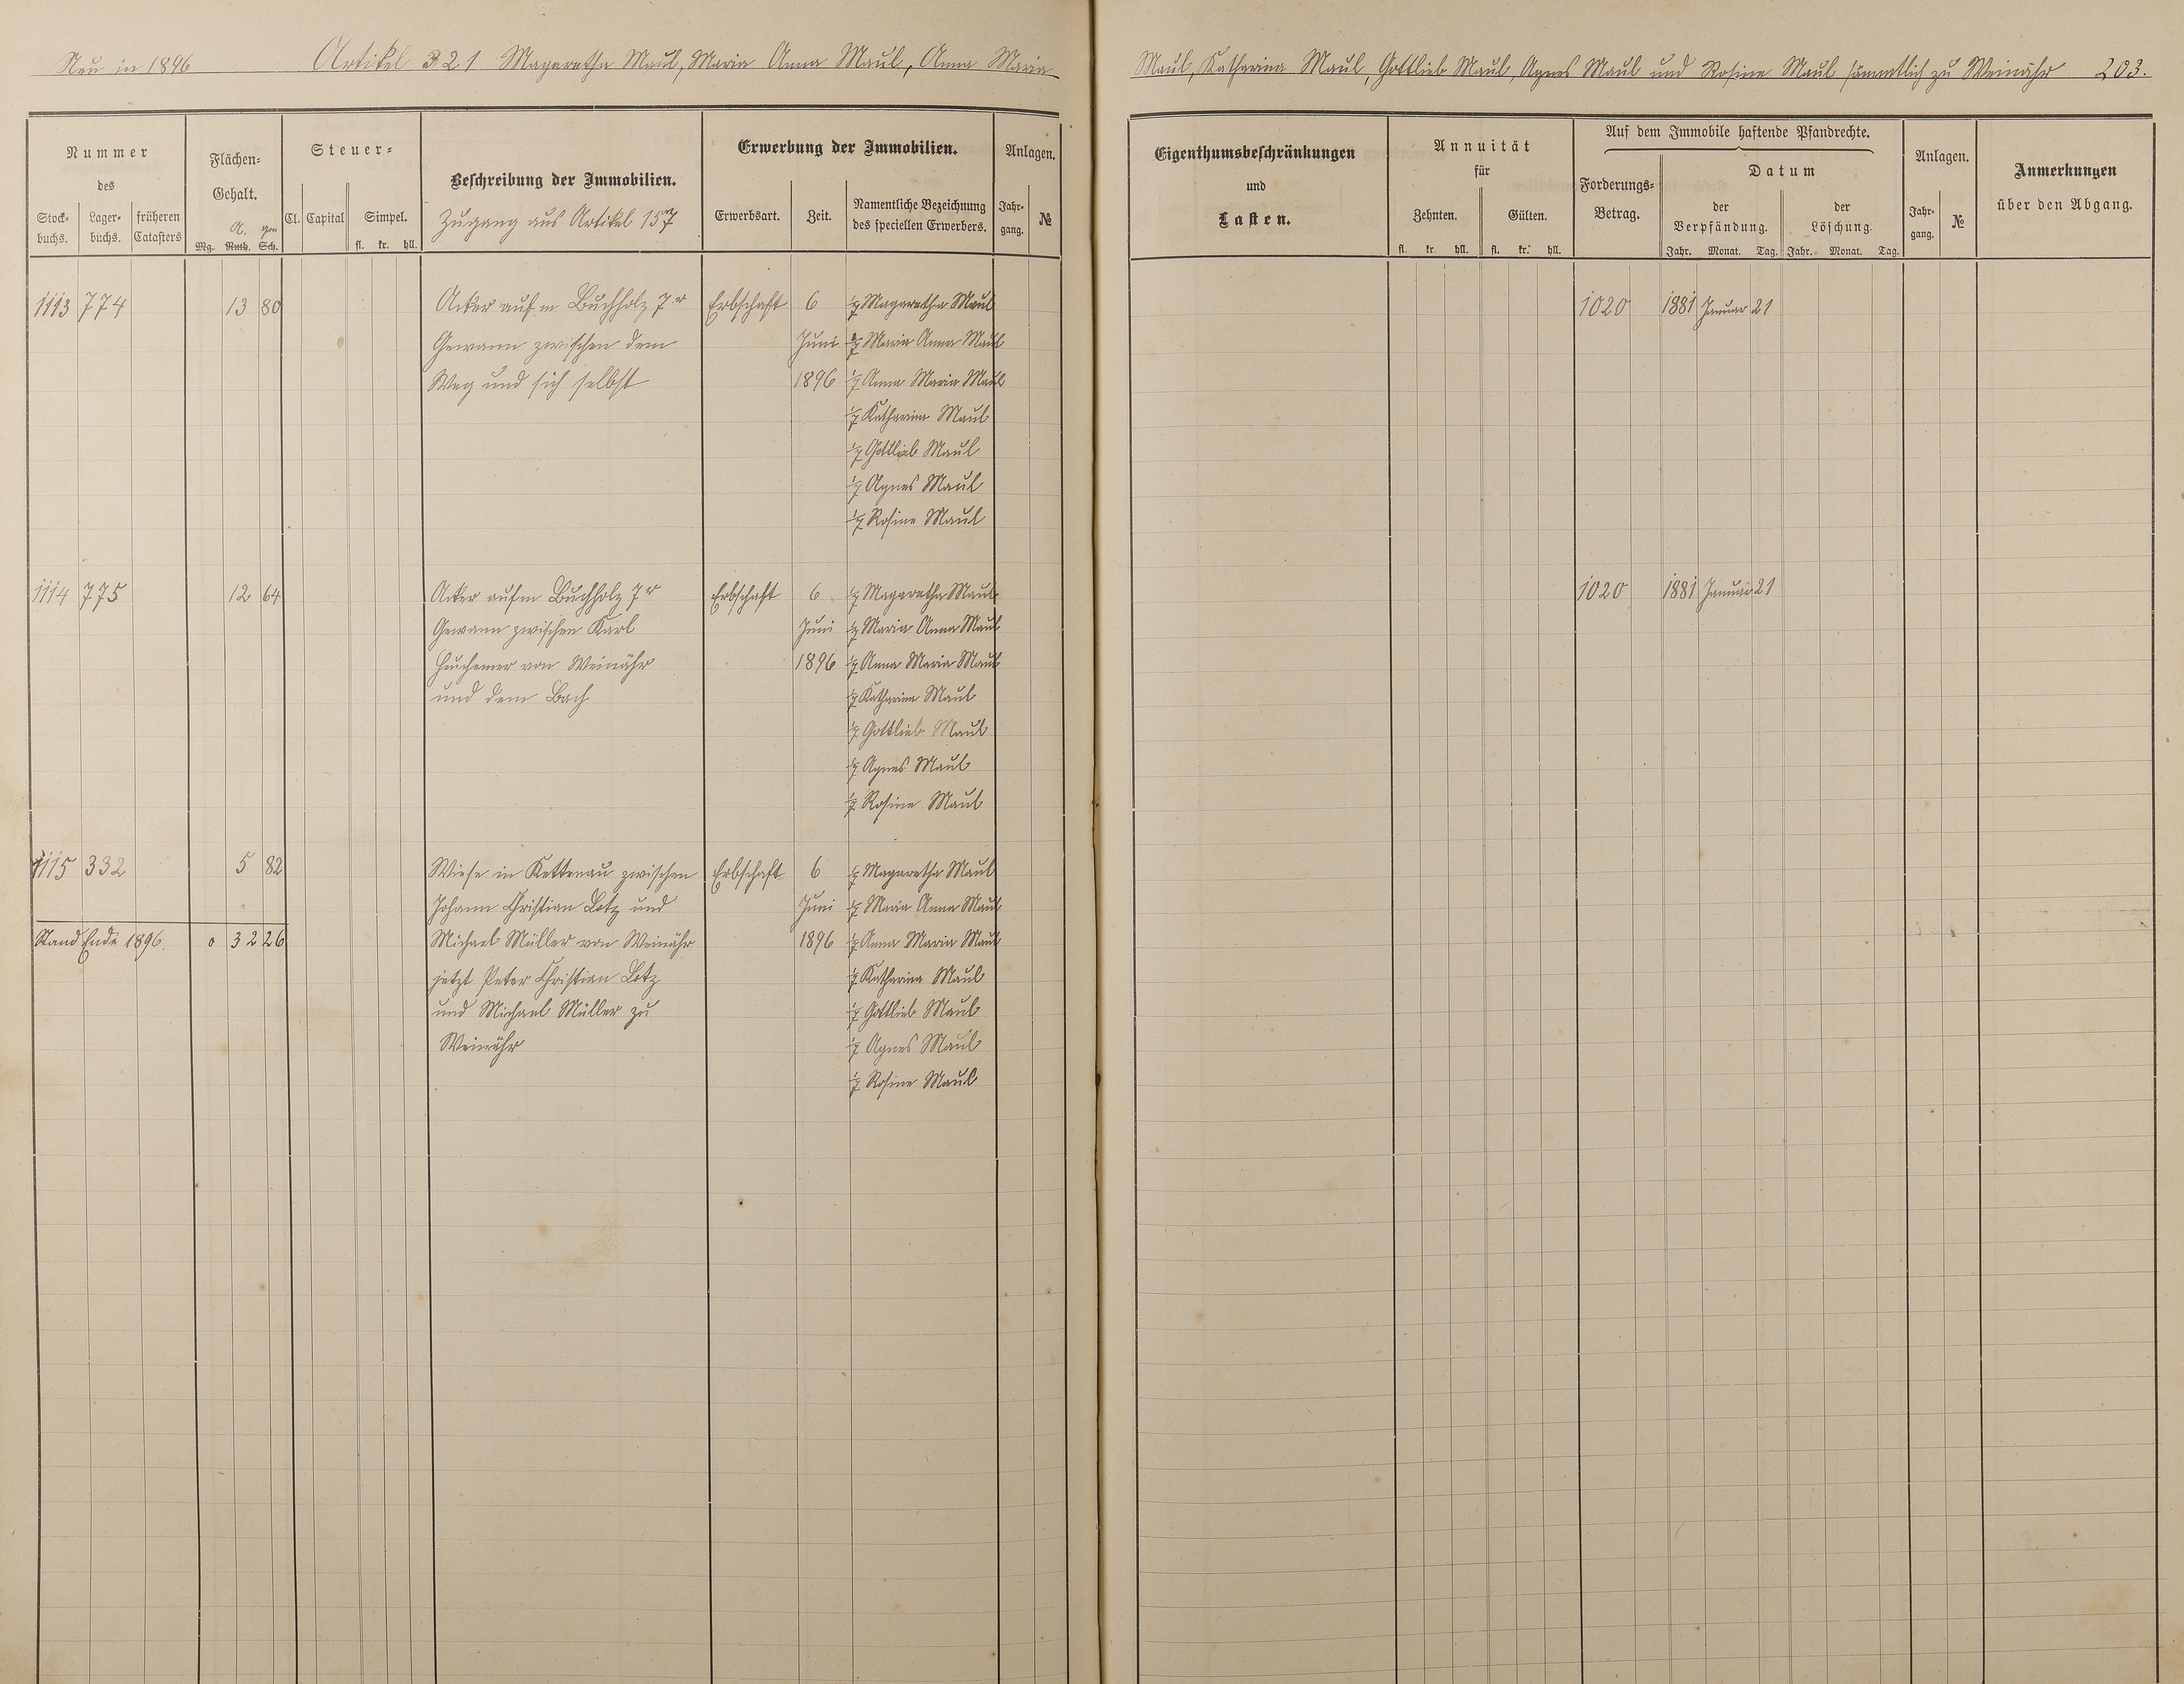 Neu in 1896 Artikel 321 Magaretha Maul, Maria Anna Maul, Anna Maria
Maul, Katharina Maul, Gottlieb Maul, Agnes Maul und Rosine Maul sämmtlich zu Weinähr 203.
Nummer
des
Stock-
buchs.
Lager-
buchs.
früheren
Catasters
Flächen-
Gehalt.
A. qm
Mg. Ruth. Sch.
Steuer-
Cl. Capital Simpel.
fl. kr. hll.
Beschreibung der Immobilien.
Zugang aus Artikel 157
Erwerbung der Immobilien.
Erwerbsart. Zeit.
Namentliche Bezeichnung
des speciellen Erwerbers.
Anlagen.
Jahr-
gang.
№
Eigenthumsbeschränkungen
und
Lasten.
Annuität
für
Zehnten. Gülten.
fl. kr. hll. fl. kr. hll.
Auf dem Immobile haftende Pfandrechte.
Forderungs-
Betrag.
Datum
der
Verpfändung.
der
Löschung.
Jahr. Monat. Tag. Jahr. Monat. Tag.
Anlagen.
Jahr-
gang.
№
Anmerkungen
über den Abgang.
1113 774 13 80 Acker auf'm Buchholz 7r Erbschaft 6 1/7 Magaretha Maul 1020 1881 Januar 21
Gewann zwischen dem Juni 1/7 Maria Anna Maul
Weg und sich selbst 1896 1/7 Anna Maria Maul
1/7 Katharina Maul
1/7 Gottlieb Maul
1/7 Agnes Maul
1/7 Rosine Maul
1114 775 12 64 Acker aufm Buchholz 7r Erbschaft 6 1/7 Magaretha Maul 1020 1881 Januar 21
Gewann zwischen Karl Juni 1/7 Maria Anna Maul
Heuchemer von Weinähr 1896 1/7 Anna Maria Maul
und dem Bach 1/7 Katharina Maul
1/7 Gottlieb Maul
1/7 Agnes Maul
1/7 Rosine Maul
1115 332 5 82 Wiese in Kettenau zwischen Erbschaft 6 1/7 Magaretha Maul
Johann Christian Lotz und Juni 1/7 Maria Anna Maul
Stand Ende 1896. 0 32 26 Michael Müller von Weinähr 1896 1/7 Anna Maria Maul
jetzt Peter Christian Lotz 1/7 Katharina Maul
und Michael Müller zu 1/7 Gottlieb Maul
Weinähr 1/7 Agnes Maul
1/7 Rosine Maul